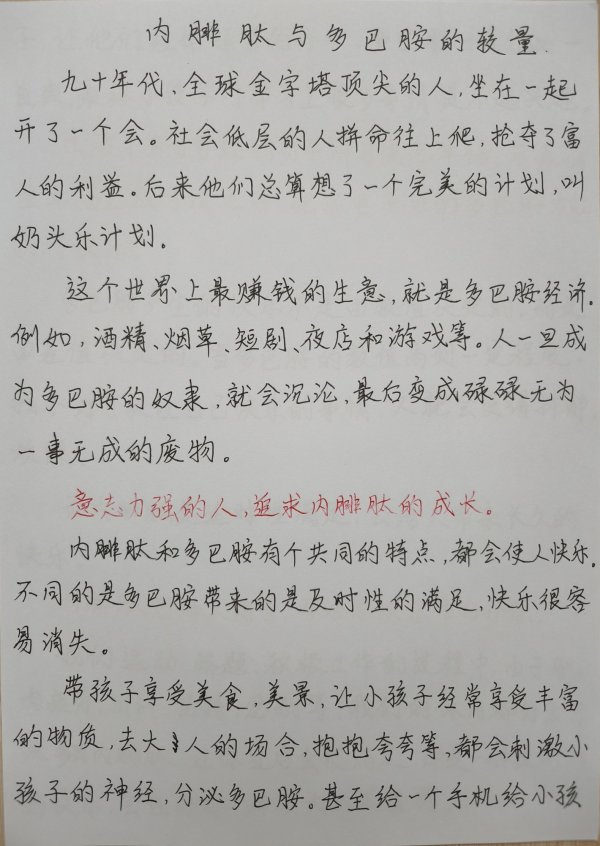 内腓肽与多巴胺的较量.
九十年代,全球金字塔顶尖的人,坐在一起
开了一个会。社会低层的人拼命往上爬,抢夺了富
人的利益。后来他们总算想了一个完美的计划,叫
奶头乐计划.
这个世界上最赚钱的生意,就是多巴胺经济.
例如,酒精、烟草、短剧、夜店和游戏等。人一旦成
为多巴胺的奴隶,就会沉沦,最后变成碌碌无为
一事无成的废物。
意志力强的人,追求内腓肽的成长。
内腓肽和多巴胺有个共同的特点,都会使人快乐.
不同的是多巴胺带来的是及时性的满足,快乐很容
易消失。
带孩子享受美食,美景,让小孩子经常享受丰富
的物质,去大人的场合,抱抱夸夸等,都会刺激小
孩子的神经,分泌多巴胺。甚至给一个手机给小孩